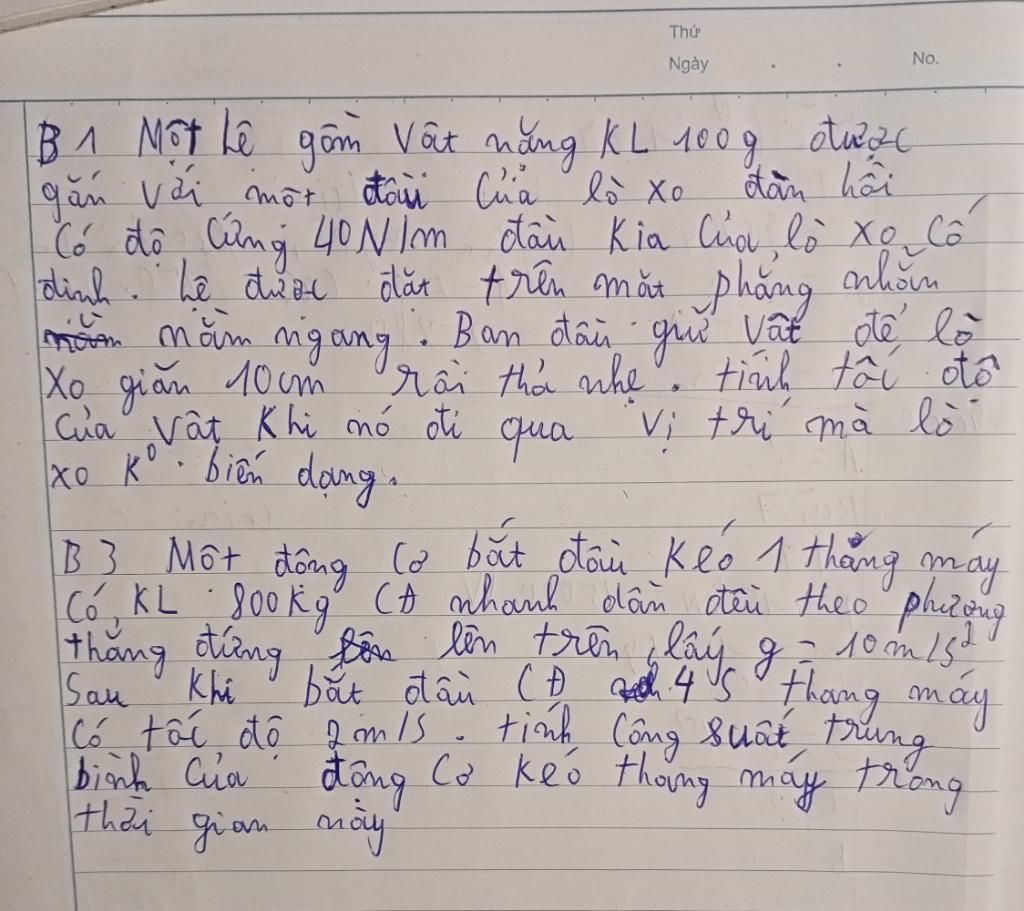 Thứ
Ngày . . No.
B1 Một hệ gồm vật nặng KL 100g được
gắn với một đầu của lò xo đàn hồi
có độ cứng 40N/m đầu kia của lò xo cố
định. hệ được đặt trên mặt phẳng nhẵn
nằm ngang. Ban đầu giữ vật để lò
xo giãn 10cm rồi thả nhẹ. tính tốc độ
của vật khi nó đi qua vị trí mà lò
xo k⁰. biến dạng.
B3 Một động cơ bắt đầu kéo 1 thang máy
có KL 800kg CĐ nhanh dần đều theo phương
thẳng đứng lên trên, lấy g = 10m/s²
Sau khi bắt đầu CĐ 4s thang máy
có tốc độ 2m/s. tính công suất trung
bình của động cơ kéo thang máy trong
thời gian này